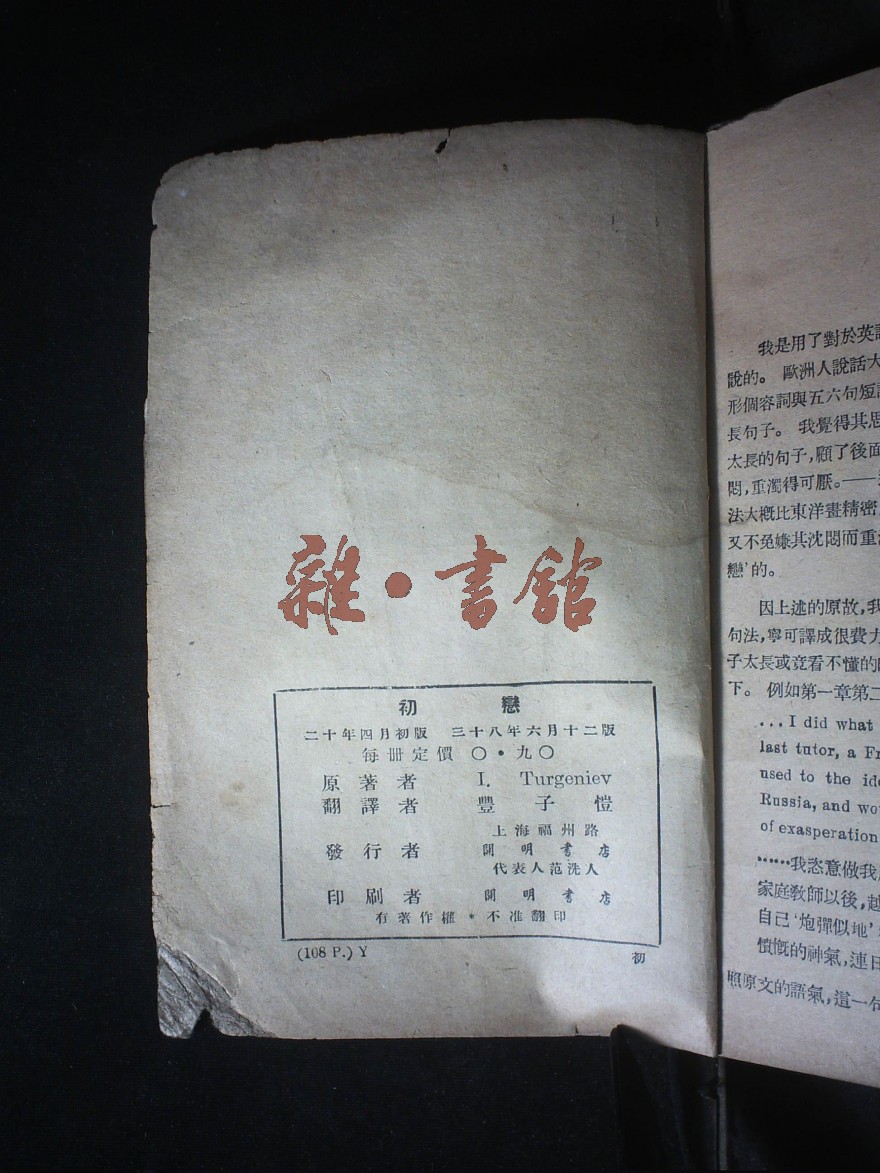 雜•書館
初戀
二十年四月初版 三十八年六月十二版
每册定價 〇・九〇
原著者 I. Turgeniev
翻譯者 豐子愷
上海福州路
發行者 開明書店
代表人范洗人
印刷者 開明書店
有著作權＊不准翻印
(108 P.) Y 初
我是用了對於英
說的。 歐洲人說話大
形個容詞與五六句短
長句子。 我覺得其思
太長的句子，顧了後面
悶，重濁得可厭。——
法大概比東洋畫精密
又不免嫌其沈悶而重
戀’的。
因上述的原故，我
句法，寧可譯成很費力
子太長或竟看不懂的
下。 例如第一章第二
...I did what
last tutor, a Fr
used to the ide
Russia, and wo
of exasperation
……我恣意做我
家庭教師以後，越
自己‘炮彈似地’
憤慨的神氣，連日
照原文的語氣，這一句